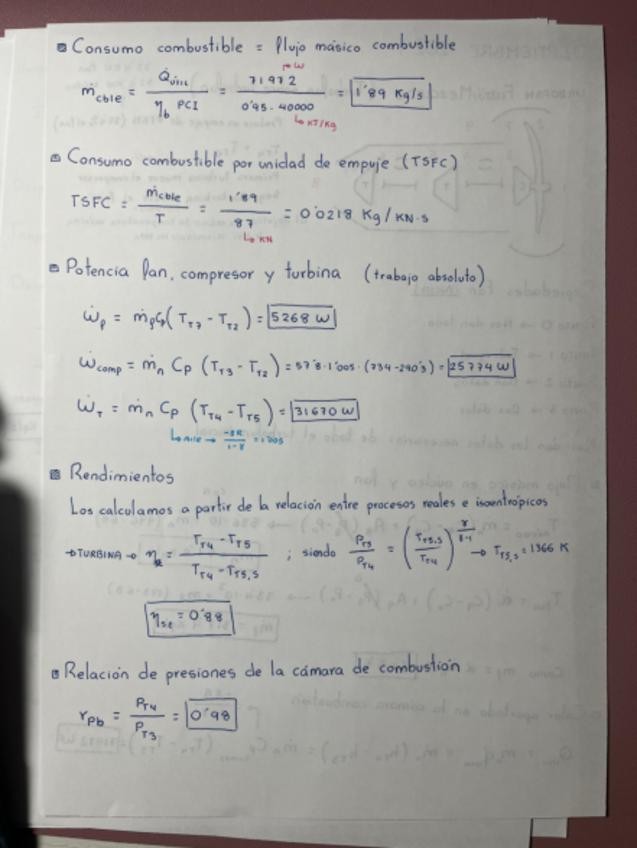 Consumo combustible = flujo másico combustible
ṁcble = Q̇um / ηb PCI = 71972 / 0'95 · 40000 = 1'89 Kg/s
→ W
↳ KJ/Kg
Consumo combustible por unidad de empuje (TSFC)
TSFC = ṁcble / T = 1'89 / 87 = 0'0218 Kg/KN·s
↳ KN
Potencia fan, compresor y turbina (trabajo absoluto)
Ẇp = ṁp Cp (TT7 - TT2) = 5268 W
Ẇcomp = ṁn Cp (TT3 - TT2) = 57'8 · 1'005 · (734 - 290'3) = 25774 W
ẆT = ṁn Cp (TT4 - TT5) = 31670 W
↳ Aire → -γR / 1-γ = 1'005
Rendimientos
Los calculamos a partir de la relación entre procesos reales e isoentrópicos
→ TURBINA → η = TT4 - TT5 / TT4 - TT5,s ; siendo PT5 / PT4 = (TT5,s / TT4)^γ/γ-1 → TT5,s = 1366 K
ηse = 0'88
Relación de presiones de la cámara de combustión
rpb = PT4 / PT3 = 0'98